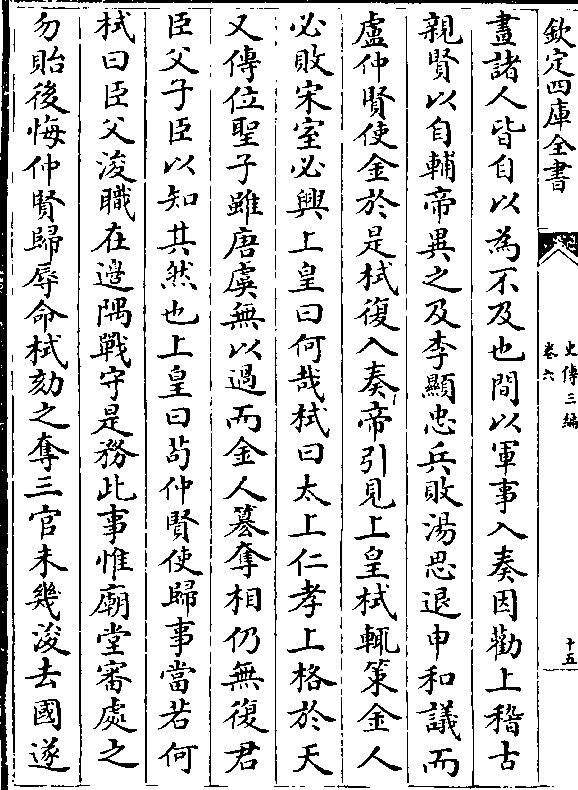 欽定四庫全書
史傳三編
卷六
十五
畫諸人皆自以為不及也間以軍事入奏因勸上稽古
親賢以自輔帝異之及李顯忠兵敗湯思退申和議而
盧仲賢使金於是栻復入奏帝引見上皇栻輒策金人
必敗宋室必興上皇曰何哉栻曰太上仁孝上格於天
又傳位聖子雖唐虞無以過而金人簒奪相仍無復君
臣父子臣以知其然也上皇曰茍仲賢使歸事當若何
栻曰臣父浚職在邉隅戰守是務此事惟廟堂審處之
勿貽後悔仲賢歸辱命栻劾之奪三官未幾浚去國遂